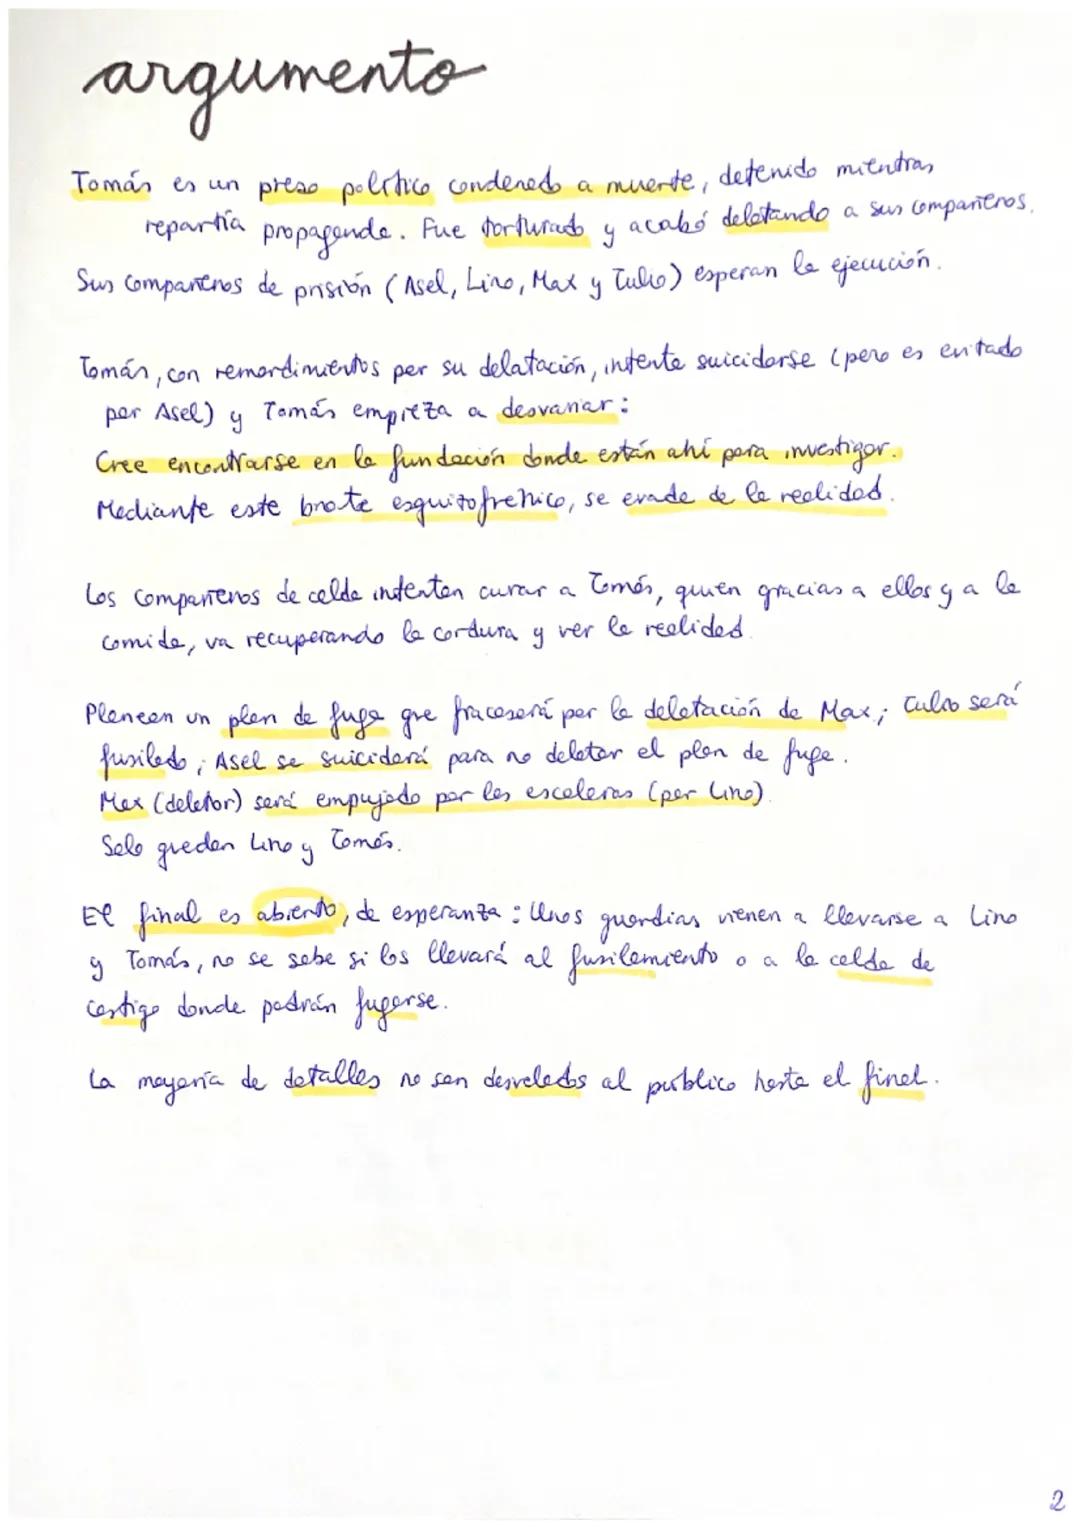 argumento
Tomás es un preso político condenado a muerte, detenido mientras
repartía propaganda. Fue torturado y acabó delatando a sus compañeros.
Sus compañeros de prisión (Asel, Lino, Max y Tulio) esperan la ejecución.
Tomás, con remordimientos por su delatación, intenta suicidarse (pero es evitado
por Asel) y Tomás empieza a desvariar:
Cree encontrarse en la fundación donde están ahí para investigar.
Mediante este brote esquizofrenico, se evade de la realidad.
Los compañeros de celda intentan curar a Tomás, quien gracias a ellos y a la
comida, va recuperando la cordura y ver la realidad.
Planean un plan de fuga que fracasará por la delatación de Max; Tulio será
fusilado; Asel se suicidará para no delatar el plan de fuga.
Max (delator) será empujado por las escaleras (por Lino).
Solo quedan Lino y Tomás.
El final es abierto, de esperanza: Unos guardias vienen a llevarse a Lino
y Tomás, no se sabe si los llevará al fusilamiento o a la celda de
castigo donde podrán fugarse.
La mayoría de detalles no son desvelados al público hasta el final.
2